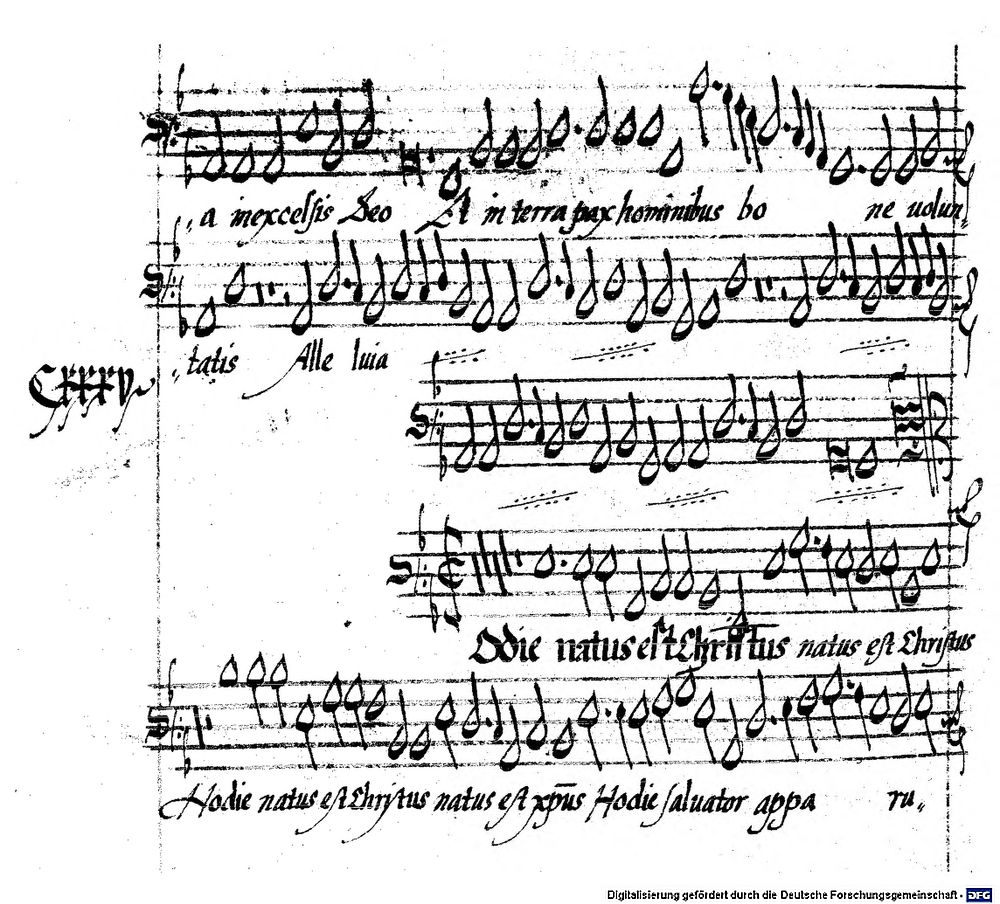 a in excelsis Deo Et in terra pax hominibus bo ne uolun,,
,,tatis Alle luia
CXXXV
Odie natus est Christus natus est Christus
Hodie natus est Christus natus est xp̄us Hodie saluator appa ru,,
Digitalisierung gefördert durch die Deutsche Forschungsgemeinschaft - DFG